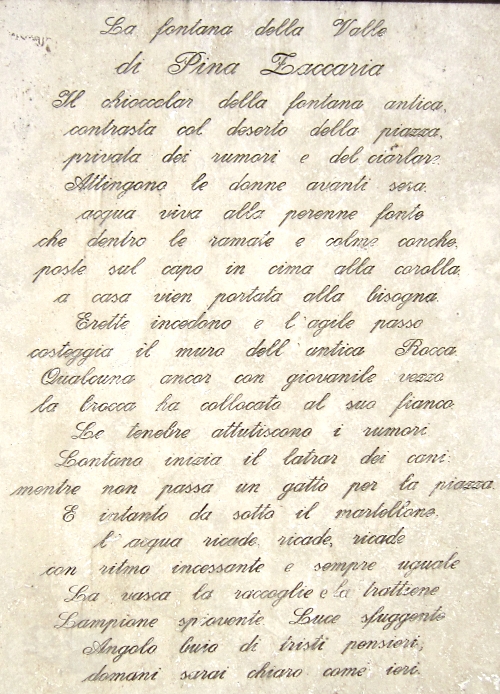 La fontana della Valle
di Pina Zaccaria
Il chioccolar della fontana antica,
contrasta col deserto della piazza,
privata dei rumori e del ciarlar.
Attingono le donne avanti sera,
acqua viva alla perenne fonte
che dentro le ramate e colme conche,
poste sul capo in cima alla corolla,
a casa vien portata alla bisogna.
Erette incedono e l'agile passo
costeggia il muro dell'antica Rocca.
Qualcuna ancor con giovanile vezzo
la brocca ha collocato al suo fianco.
Le tenebre attutiscono i rumori
Lontano inizia il latrar dei cani:
mentre non passa un gatto per la piazza.
E intanto da sotto il martellone,
l'acqua ricade, ricade, ricade
con ritmo incessante e sempre uguale
La vasca la raccoglie e la trattiene
Lampione spiovente. Luce sfuggente
Angolo buio di tristi pensieri,
domani sarai chiaro come ieri.